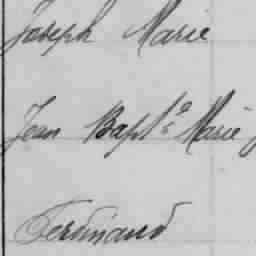 Joseph Marie
Jean Bapt.e Marie
Ferdinand